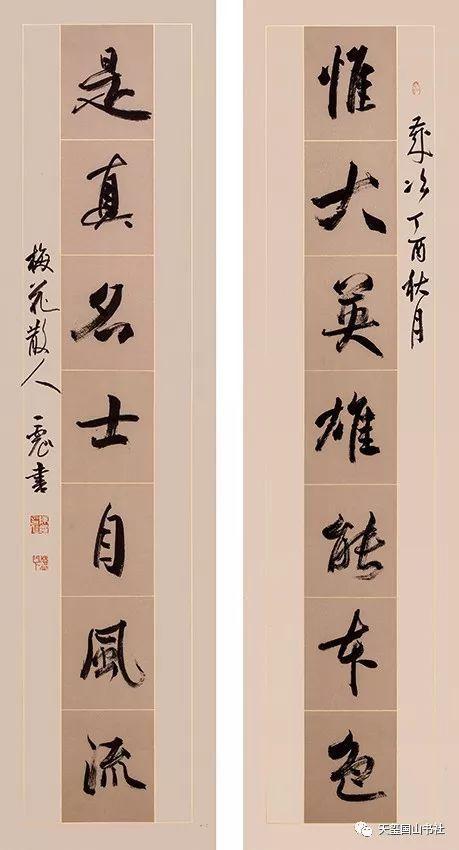 歲次丁酉秋月
惟大英雄能本色
是真名士自風流
梅花散人 書
天玺国山书社